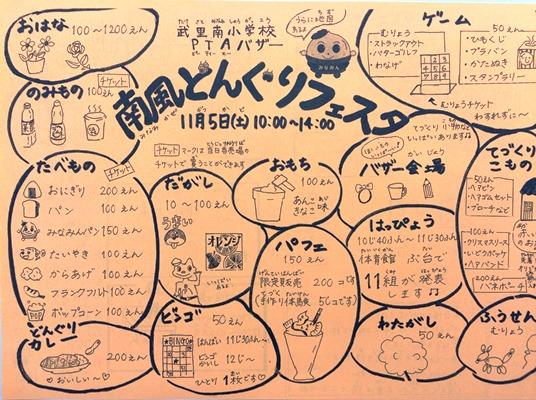 おはな
100～1200えん
武里南小学校
PTAバザー
うらに地図
あるよ
みなみん
ゲーム
むりょう
・ストラックアウト
・バターゴルフ
・わなげ
50えん
・ひもくじ
・プラバン
・かたぬき
・スタンプラリー
むりょうチケット
わすれずに～
のみもの
チケット
100えん
南風どんぐりフェスタ
みなみかぜ
11月5日(土) 10:00～14:00
チケットマークは当日券売場の
チケットで買うことができます
たべもの
チケット
おにぎり 200えん
パン 100えん
みなみんパン 150えん
たいやき 100えん
からあげ 100えん
フランクフルト 100えん
ポップコーン 100えん
だがし
10～100えん
うまい
オレンジ
おもち
100えん
あんこ
きなこ味
バザー会場
てづくり小物など
いっぱいあります
てづくり
こもの
50えん
・ヘアピン
・ヘアゴムセット
・ブローチなど
100えん
・クリスマスリース
・いどうポケット
・ヘアバンド
200えん
・バネポーチ
はっぴょう
10じ40ふん～11じ30ふん
体育館ぶ台で
11組が発表
します
パフェ
150えん
限定販売 200コです
(手作り体験 50コです)
どんぐり
カレー
200えん
おいしい～
ビンゴ
50えん
BINGO
はんばい 11じ30ふん～
ビンゴ
かいし 12じ～
ひとり1枚です
わたがし
50えん
ふうせん
むりょう